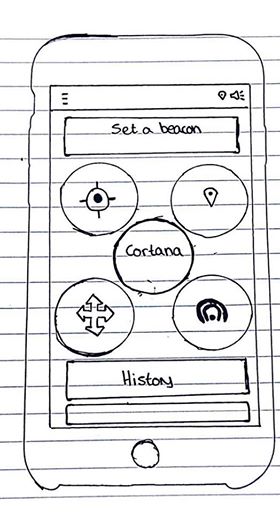 Set a beacon
Cortana
History